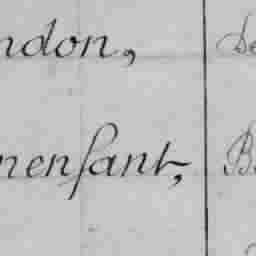 ndon, de
nenfant, B